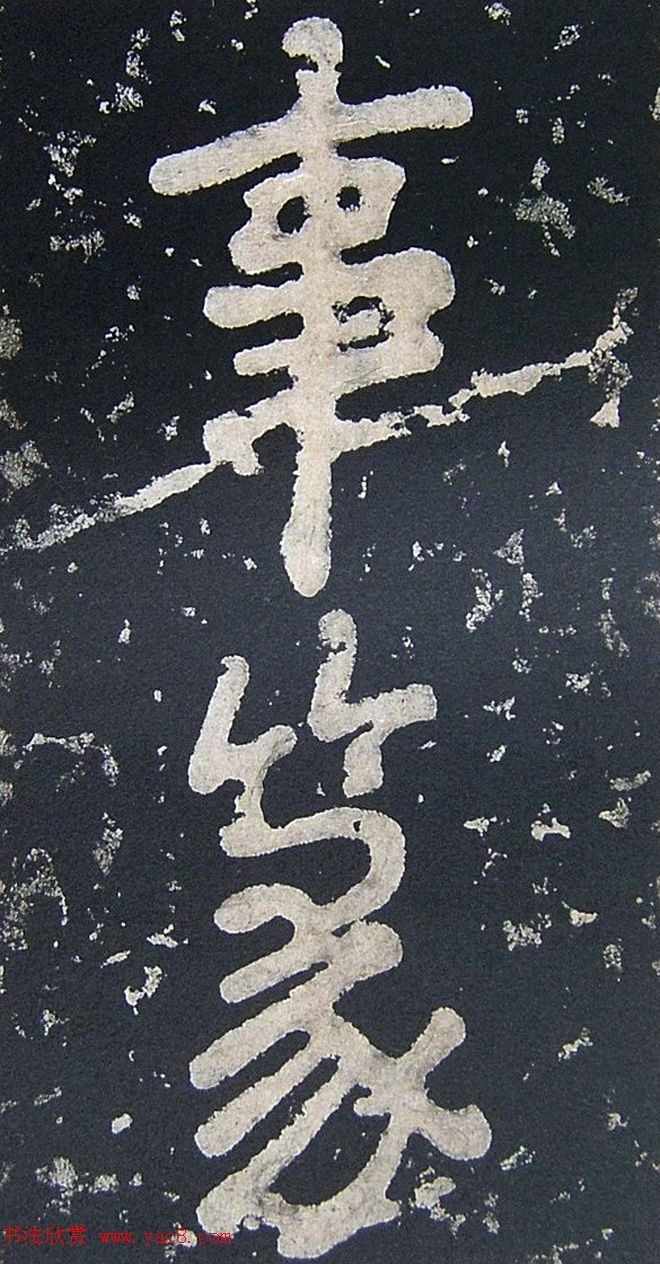 事
篆
书法欣赏 www.yac8.com